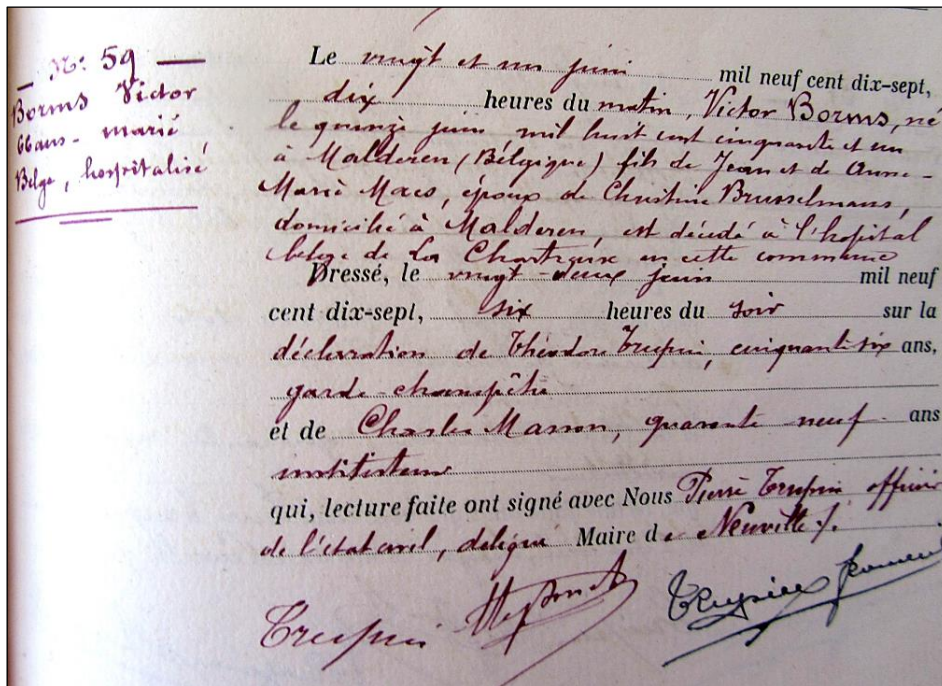 N° 59
Borms Victor
66 ans - marié
Belge, hospitalisé
Le vingt et un juin mil neuf cent dix-sept,
dix heures du matin, Victor Borms, né
le quinze juin mil huit cent cinquante et un
à Malderen (Bélgique) fils de Jean et de Anne-
Marie Maes, époux de Christine Brusselmans,
domicilié à Malderen, est décédé à l'hopital
belge de La Chartreuse en cette commune
Dressé, le vingt-deux juin mil neuf
cent dix-sept, six heures du soir sur la
déclaration de Théodore Trupin, cinquante six ans,
garde-champêtre
et de Charles Masson, quarante neuf ans
instituteur
qui, lecture faite ont signé avec Nous Pierre Trupin officier
de l'état civil, délégué Maire de Neuville s.
Trupin